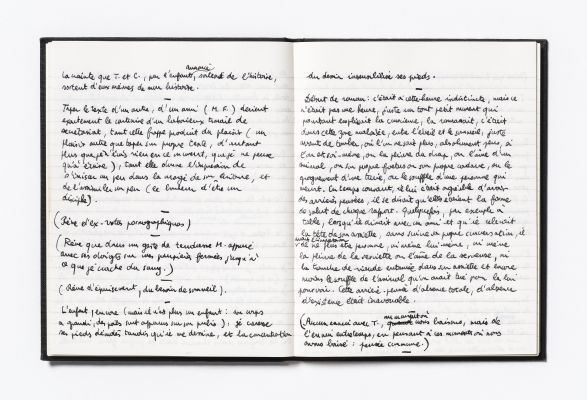 la crainte que T. et C., par l'enfant, sortent de l'histoire,
sortent d'eux-mêmes de mon histoire.
Taper le texte d'un autre, d'un ami (M. F.) devient
également le contraire d'un laborieux travail de
secrétariat, tout cette frappe produit du plaisir (un
plaisir autre que taper son propre texte, d'autant
plus que je n'écris rien en ce moment, que je ne pense
qu'à écrire), tant elle donne l'impression de
s'initier un peu dans la magie de son écriture, et
de l'assimiler un peu (le bonheur d'être un
disciple).
(Rêve d'ex-votos pornographiques)
(Rêve que dans un geste de tendresse M. appuie
avec ses doigts sur mes paupières fermées jusqu'à
ce que je crache du sang.)
(Rêve d'épuisement, du besoin de sommeil).
L'enfant, encore (mais il n'est plus un enfant : son corps
a grandi, des poils sont apparus sur son pubis) : je caresse
ses pieds dénudés tandis qu'il me dessine, et la concentration
du dessin insensibilise ses pieds.
Début de roman : c'était à cette heure indistincte, mais ce
n'était pas une heure, juste un tout petit moment qui
pourtant emplissait la conscience, la remuait, c'était
dans cette zone malaisée, entre l'éveil et le sommeil, juste
avant de tomber, où l'on ne sait plus, absolument plus, si
l'on est soi-même, ou la pliure du drap, ou l'âme d'un
animal, ou son propre fantôme ou son propre cadavre, ou le
grognement d'une truie, ou le souffle d'une personne qui
meurt. En temps courant, si lui était agréable d'avoir
des arrière pensées, il se disait qu'elles étaient la forme
de salut de chaque rapport. Quelquefois, par exemple à
table, lorsqu'il dînait avec un ami et qu'il relevait
la tête de son assiette, sans suivre sa propre conversation, il
n'était plus personne, ni même lui-même, ni même
la pliure de la serviette ou l'âme de la serveuse, ni
la tranche de viande entamée dans son assiette et encore
moins le souffle de l'animal qu'on avait tué pour la lui
procurer. Cette arrière-pensée d'absence totale, d'absence
d'existence était inavouable.
(Aucun ennui avec T., nous baisons, mais de
l'ennui entre temps, en pensant à ces moments où nous
avons baisé : pensée commune.)